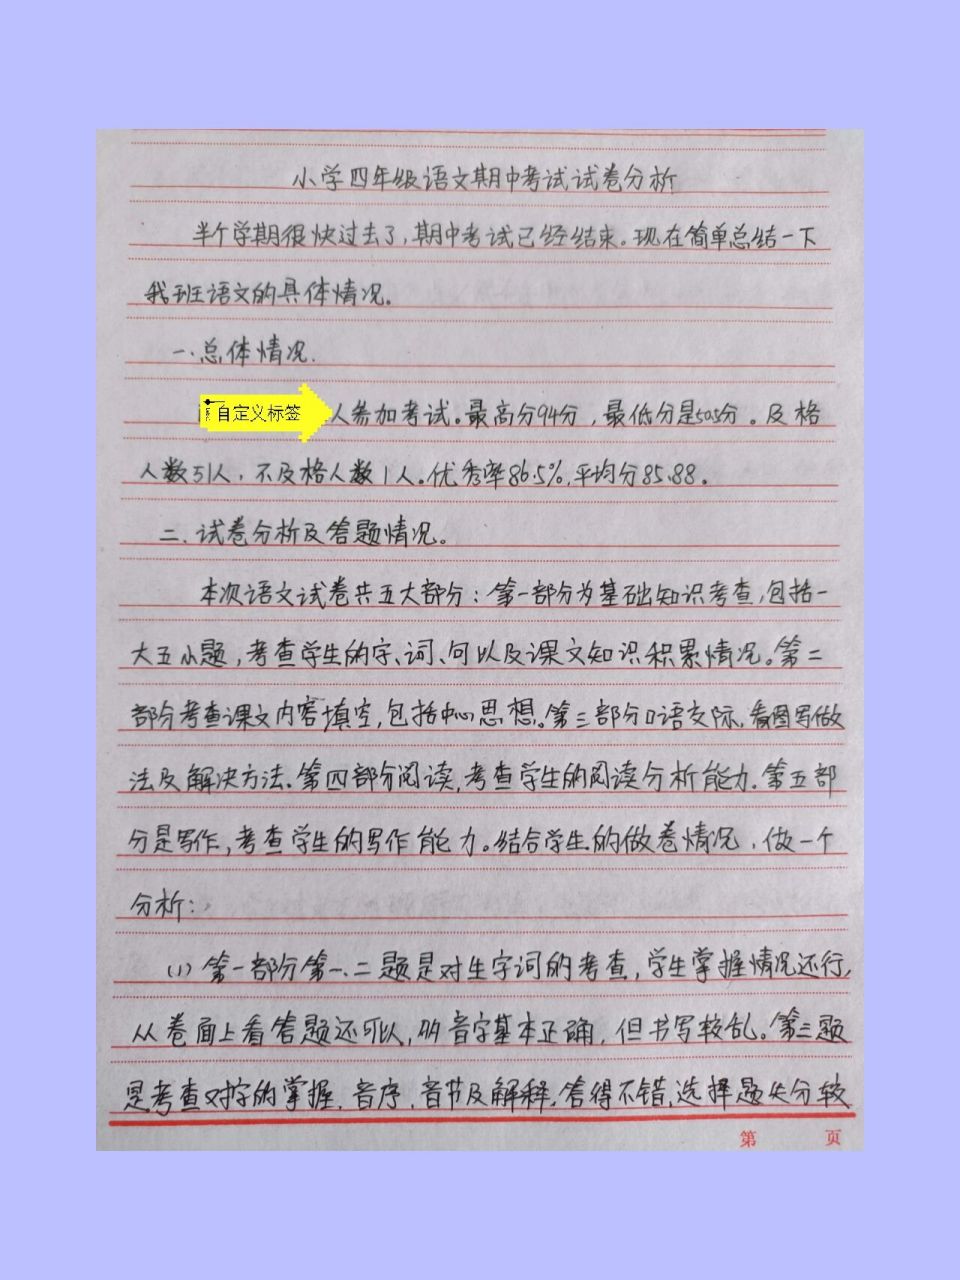 小学四年级语文期中考试试卷分析
半个学期很快过去了,期中考试已经结束。现在简单总结一下
我班语文的具体情况.
一.总体情况.
自定义标签
人参加考试。最高分94分,最低分是50.5分。及格
人数51人,不及格人数1人。优秀率86.5%,平均分85.88。
二.试卷分析及答题情况。
本次语文试卷共五大部分:第一部分为基础知识考查,包括一
大五小题,考查学生的字、词、句以及课文知识积累情况。第二
部分考查课文内容填空,包括中心思想。第三部分口语交际,看图写做
法及解决方法.第四部分阅读,考查学生的阅读分析能力.第五部
分是写作,考查学生的写作能力。结合学生的做卷情况,做一个
分析:
(1)第一部分第一、二题是对生字词的考查,学生掌握情况还行,
从卷面上看答题还可以,听音字基本正确,但书写较乱。第三题
是考查对字的掌握.音序,音节及解释,答得不错,选择题失分较
第 页